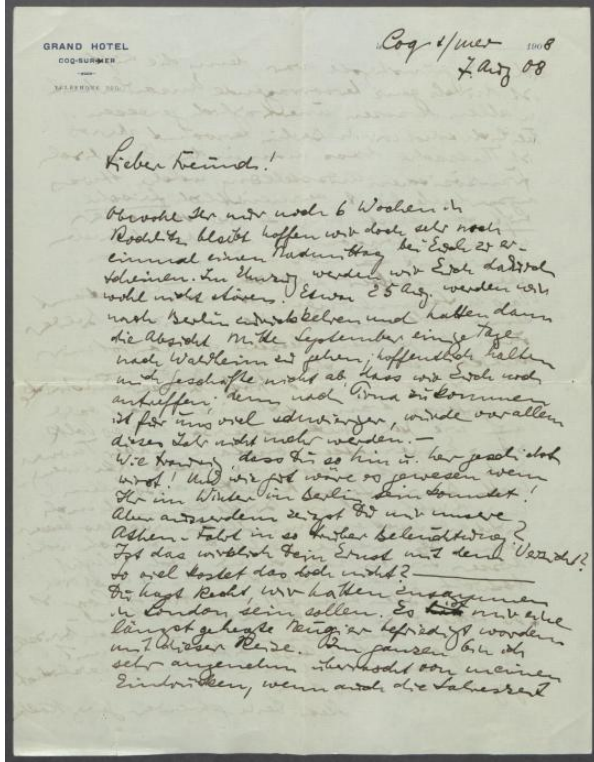 GRAND HOTEL
COQ-SUR-MER
TÉLÉPHONE
Coq s/mer 1908
7. Aug 08
Lieber Freund!
Obwohl Ihr nur noch 6 Wochen in
Rochlitz bleibt hoffen wir doch sehr noch
einmal einen Nachmittag bei Euch zu er-
scheinen. Im Umzug werden wir Euch dadurch
wohl nicht stören. Etwa 25 Aug. werden wir
nach Berlin zurückkehren und hatten dann
die Absicht Mitte September einige Tage
nach Waldheim zu gehen, hoffentlich halten
mich Geschäfte nicht ab, dass wir Euch noch
antreffen, denn nach Pirna zu kommen
ist für uns viel schwieriger, würde vor allem
dieses Jahr nicht mehr werden. –
Wie traurig, dass Du so hin u. her geschickt
wirst! Und wie gut wäre es gewesen wenn
Ihr im Winter in Berlin sein konntet!
Aber ausserdem zeigst Du mir unsere
Athen-Fahrt in so trüber Beleuchtung?
Ist das wirklich Dein Ernst mit dem Verzicht?
so viel kostet das doch nicht? –
Du hast Recht, wir hätten zusammen
in London sein sollen. Es ist mir eine
längst gehegte Neugier befriedigt worden
mit dieser Reise. Im ganzen bin ich
sehr angenehm überrascht von meinen
Eindrücken, wenn auch die Jahreszeit